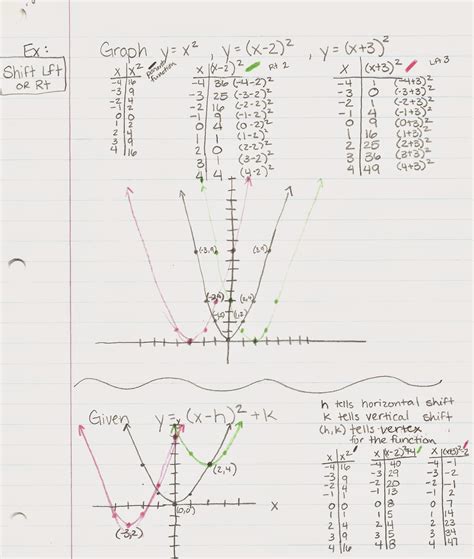 Ex:
Shift Lft
OR Rt
Graph y=x², y=(x-2)², y=(x+3)²
x x² parent function
-4 16
-3 9
-2 4
-1 1
0 0
1 1
2 4
3 9
4 16
x (x-2)² Rt 2
-4 36 (-4-2)²
-3 25 (-3-2)²
-2 16 (-2-2)²
-1 9 (-1-2)²
0 4 (0-2)²
1 1 (1-2)²
2 0 (2-2)²
3 1 (3-2)²
4 4 (4-2)²
x (x+3)² Lft 3
-4 1 (-4+3)²
-3 0 (-3+3)²
-2 1 (-2+3)²
-1 4 (-1+3)²
0 9 (0+3)²
1 16 (1+3)²
2 25 (2+3)²
3 36 (3+3)²
4 49 (4+3)²
(-3,9)
(3,9)
(-2,4)
(2,4)
Given y=(x-h)²+k
h tells horizontal shift
k tells vertical shift
(h,k) tells vertex
for the function
y
x
(2,4)
(0,0)
(-3,2)
x x²
-4 16
-3 9
-2 4
-1 1
0 0
1 1
2 4
3 9
4 16
x (x-2)²+4
-4 40
-3 29
-2 20
-1 13
0 8
1 5
2 4
3 5
4 8
x (x+3)²-2
-4 -1
-3 -2
-2 -1
-1 2
0 7
1 14
2 23
3 34
4 47